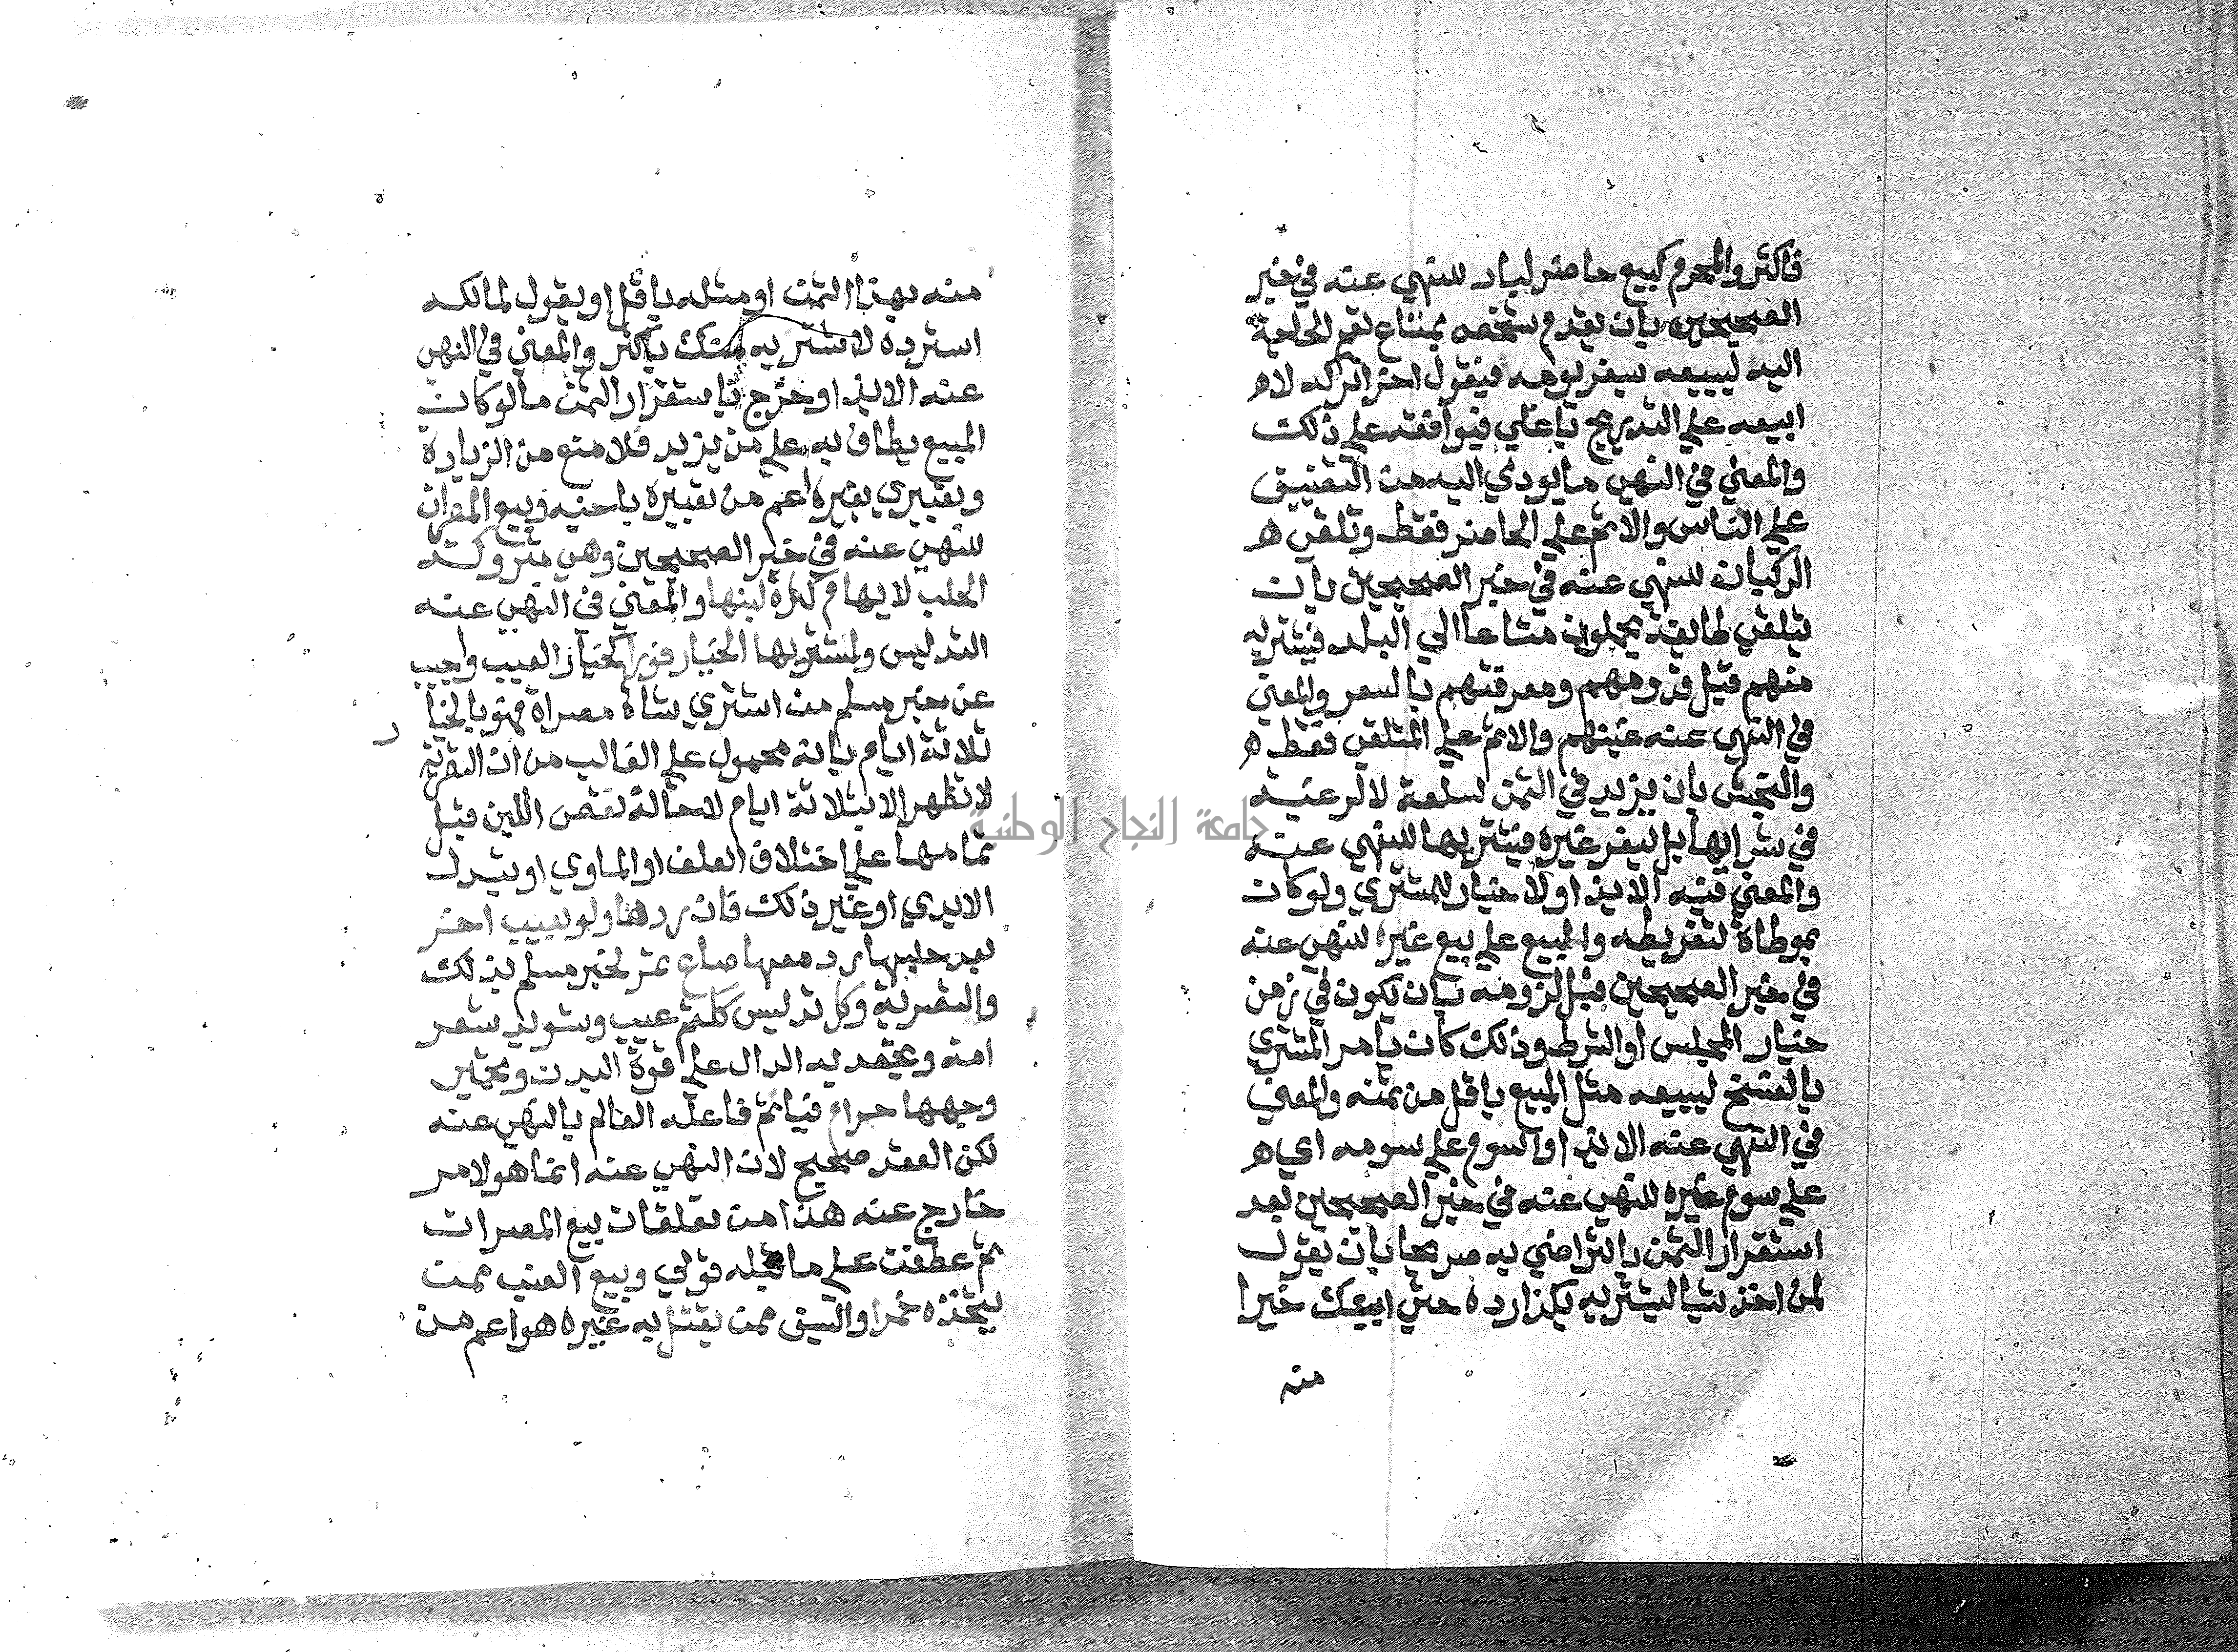 فاكثر والمحرم كبيع حاضر لباد للنهي عنه في خبر
الصحيحين بان يقدم شخص بمتاع تعم الحاجة
اليه ليبيعه بسعر يومه فيقول اخر اتركه لاه
ابيعه علي التدريج باغلي فيوافقه علي ذلك
والمعني في النهي ما يودي اليه من التضييق
علي الناس والاثم علي الحاضر فقط وتلقي ه
الركبان للنهي عنه في خبر الصحيحين بان
يتلقي طايفة يحملون متاعا الي البلد فيشتريه
منهم قبل قدومهم ومعرفتهم بالسعر والمعني
في النهي عنه غبنهم والاثم علي المتلقي فقط ه
والنجش بان يزيد في الثمن لسلعة لا لرغبة
في شرايها بل ليغر غيره فيشتريها للنهي عنه
والمعني فيه الايذاولا خيار للمشتري ولو كان
بمواطاة لتفريطه والبيع علي بيع غيره للنهي عنه
في خبر الصحيحين قبل لزومه بان يكون في زمن
خيار المجلس او الشرط وذلك كان يامر المشتري
بالفسخ ليبيعه مثل المبيع باقل من ثمنه والمعني
في النهي عنه الايذا والسوم علي سومه اي ه
علي سوم غيره للنهي عنه في خبر الصحيحين بعد
استقرار الثمن بالتراضي به صريحا بان يقول
لمن اخذ شيا ليشتريه بكذا رده حتي ابيعك خيرا
منه
منه بهذا الثمن او مثله باقل او يقول لمالكه
استرده لاشتريه منك باكثر والمعني في النهي
عنه الايذا وخرج باستقرار الثمن ما لو كان
المبيع يطاف به علي من يزيد فلا منع من الزيادة
وتعبيري بغيره اعم من تعبيره باخيه وبيع المصراة
للنهي عنه في خبر الصحيحين وهي متروكة
الحلب لايهام كثرة لبنها والمعني في النهي عنه
التدليس ولمشتريها الخيار فورا كخيار العيب واجيب
عن خبر مسلم من اشتري شاة مصراة فهو بالخيا
ر
ثلاثة ايام بانه محمول علي الغالب من ان التصرية
لا تظهر الا بثلاثة ايام لاحالة نقص اللبن قبل
تمامها علي اختلاف العلف او الماوي او تبدل
الايدي او غير ذلك فان ردها ولو بعيب اخر
بعد حلبها رد معها صاع تمر لخبر مسلم بذلك
والتصرية وكل تدليس ككتم عيب وتسويد شعر
امة وتجعيد به الدال علي قوة البدن وتحمير
وجهها حرام فياثم فاعله العالم بالنهي عنه
لكن العقد صحيح لان النهي عنه انما هو لامر
خارج عنه هذا من تعلقات بيع المصرات
ثم عطفت علي ما قبله قولي وبيع العنب ممن
يتخذه خمرا والسيف ممن يقتل به غيره هو اعم من
جامعة النجاح الوطنية